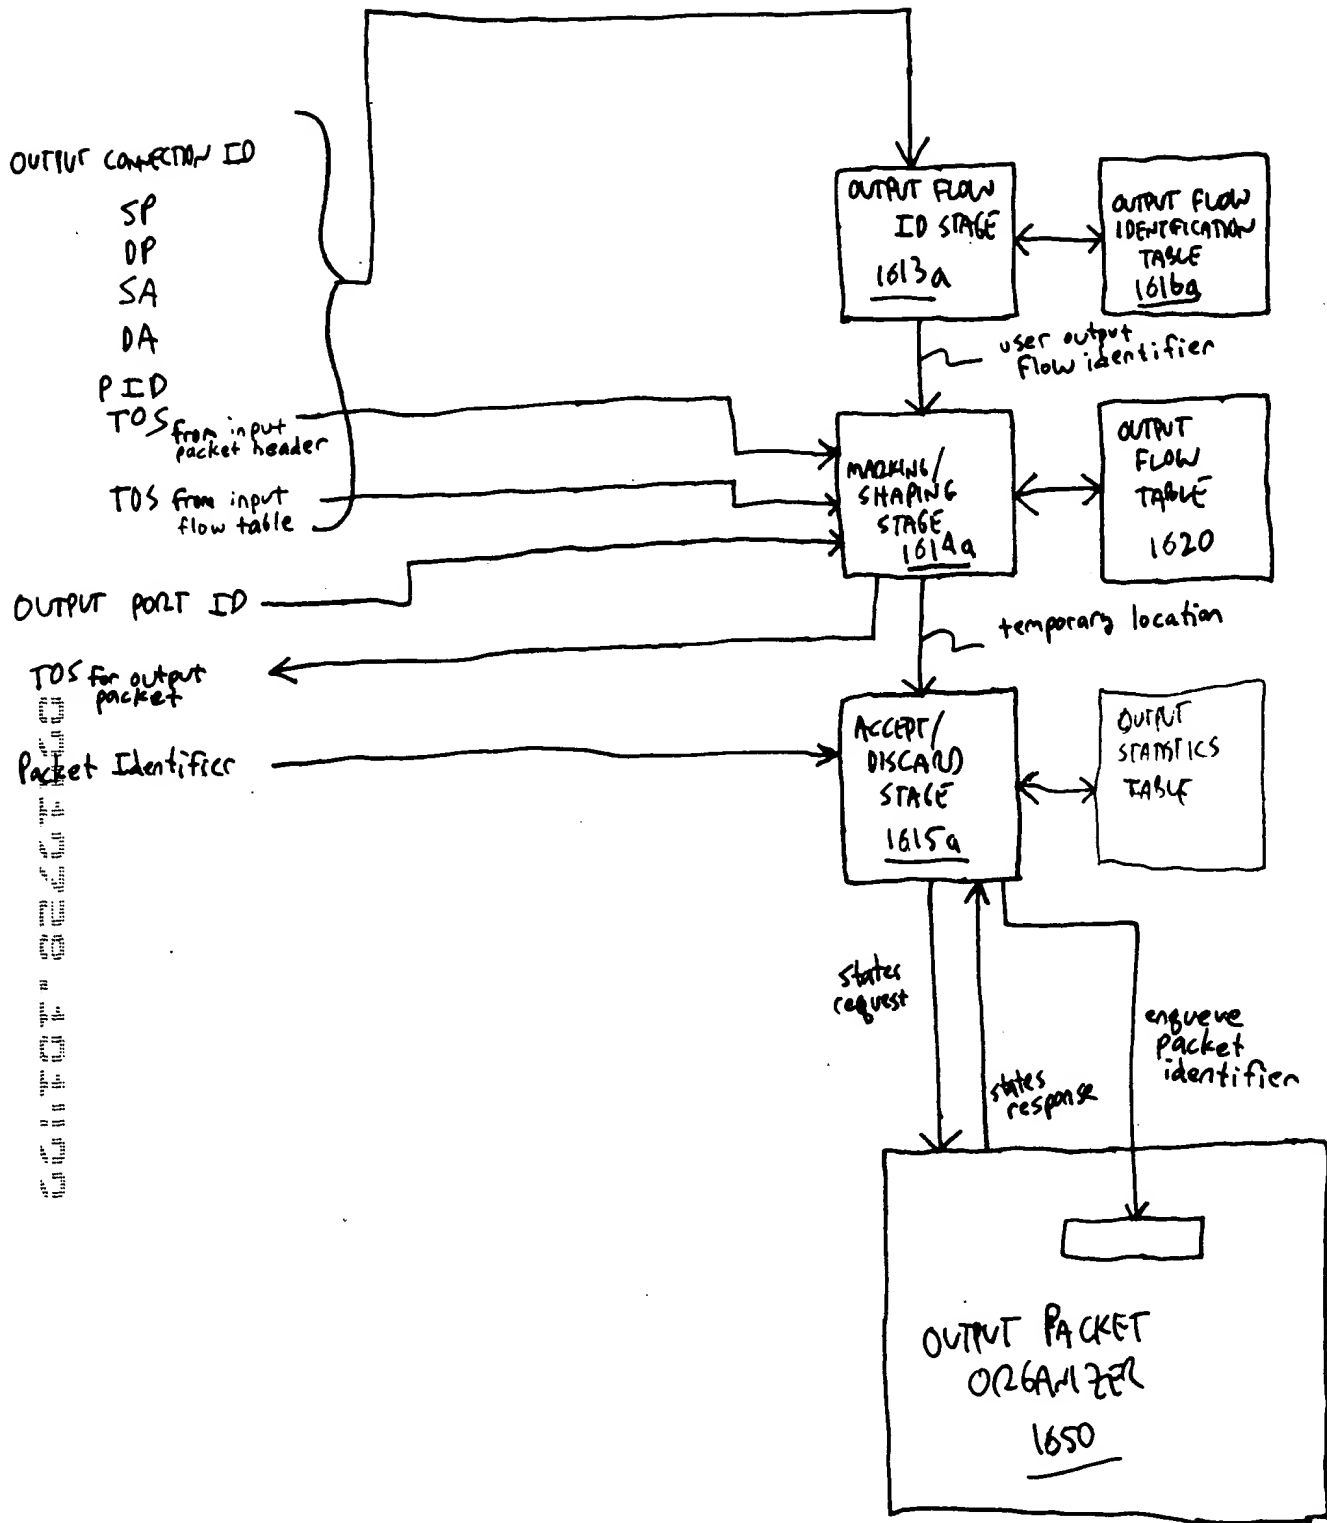 OUTPUT CONNECTION ID
SP
DP
SA
DA
PID
TOS from input
packet header
TOS from input
flow table
OUTPUT PORT ID
TOS for output
packet
Packet Identifier
OUTPUT FLOW
ID STAGE
1613a
OUTPUT FLOW
IDENTIFICATION
TABLE
1616a
user output
flow identifier
MARKING/
SHAPING
STAGE
1614a
OUTPUT
FLOW
TABLE
1620
temporary location
ACCEPT/
DISCARD
STAGE
1615a
OUTPUT
STATISTICS
TABLE
states
request
states
response
enqueue
packet
identifier
OUTPUT PACKET
ORGANIZER
1650